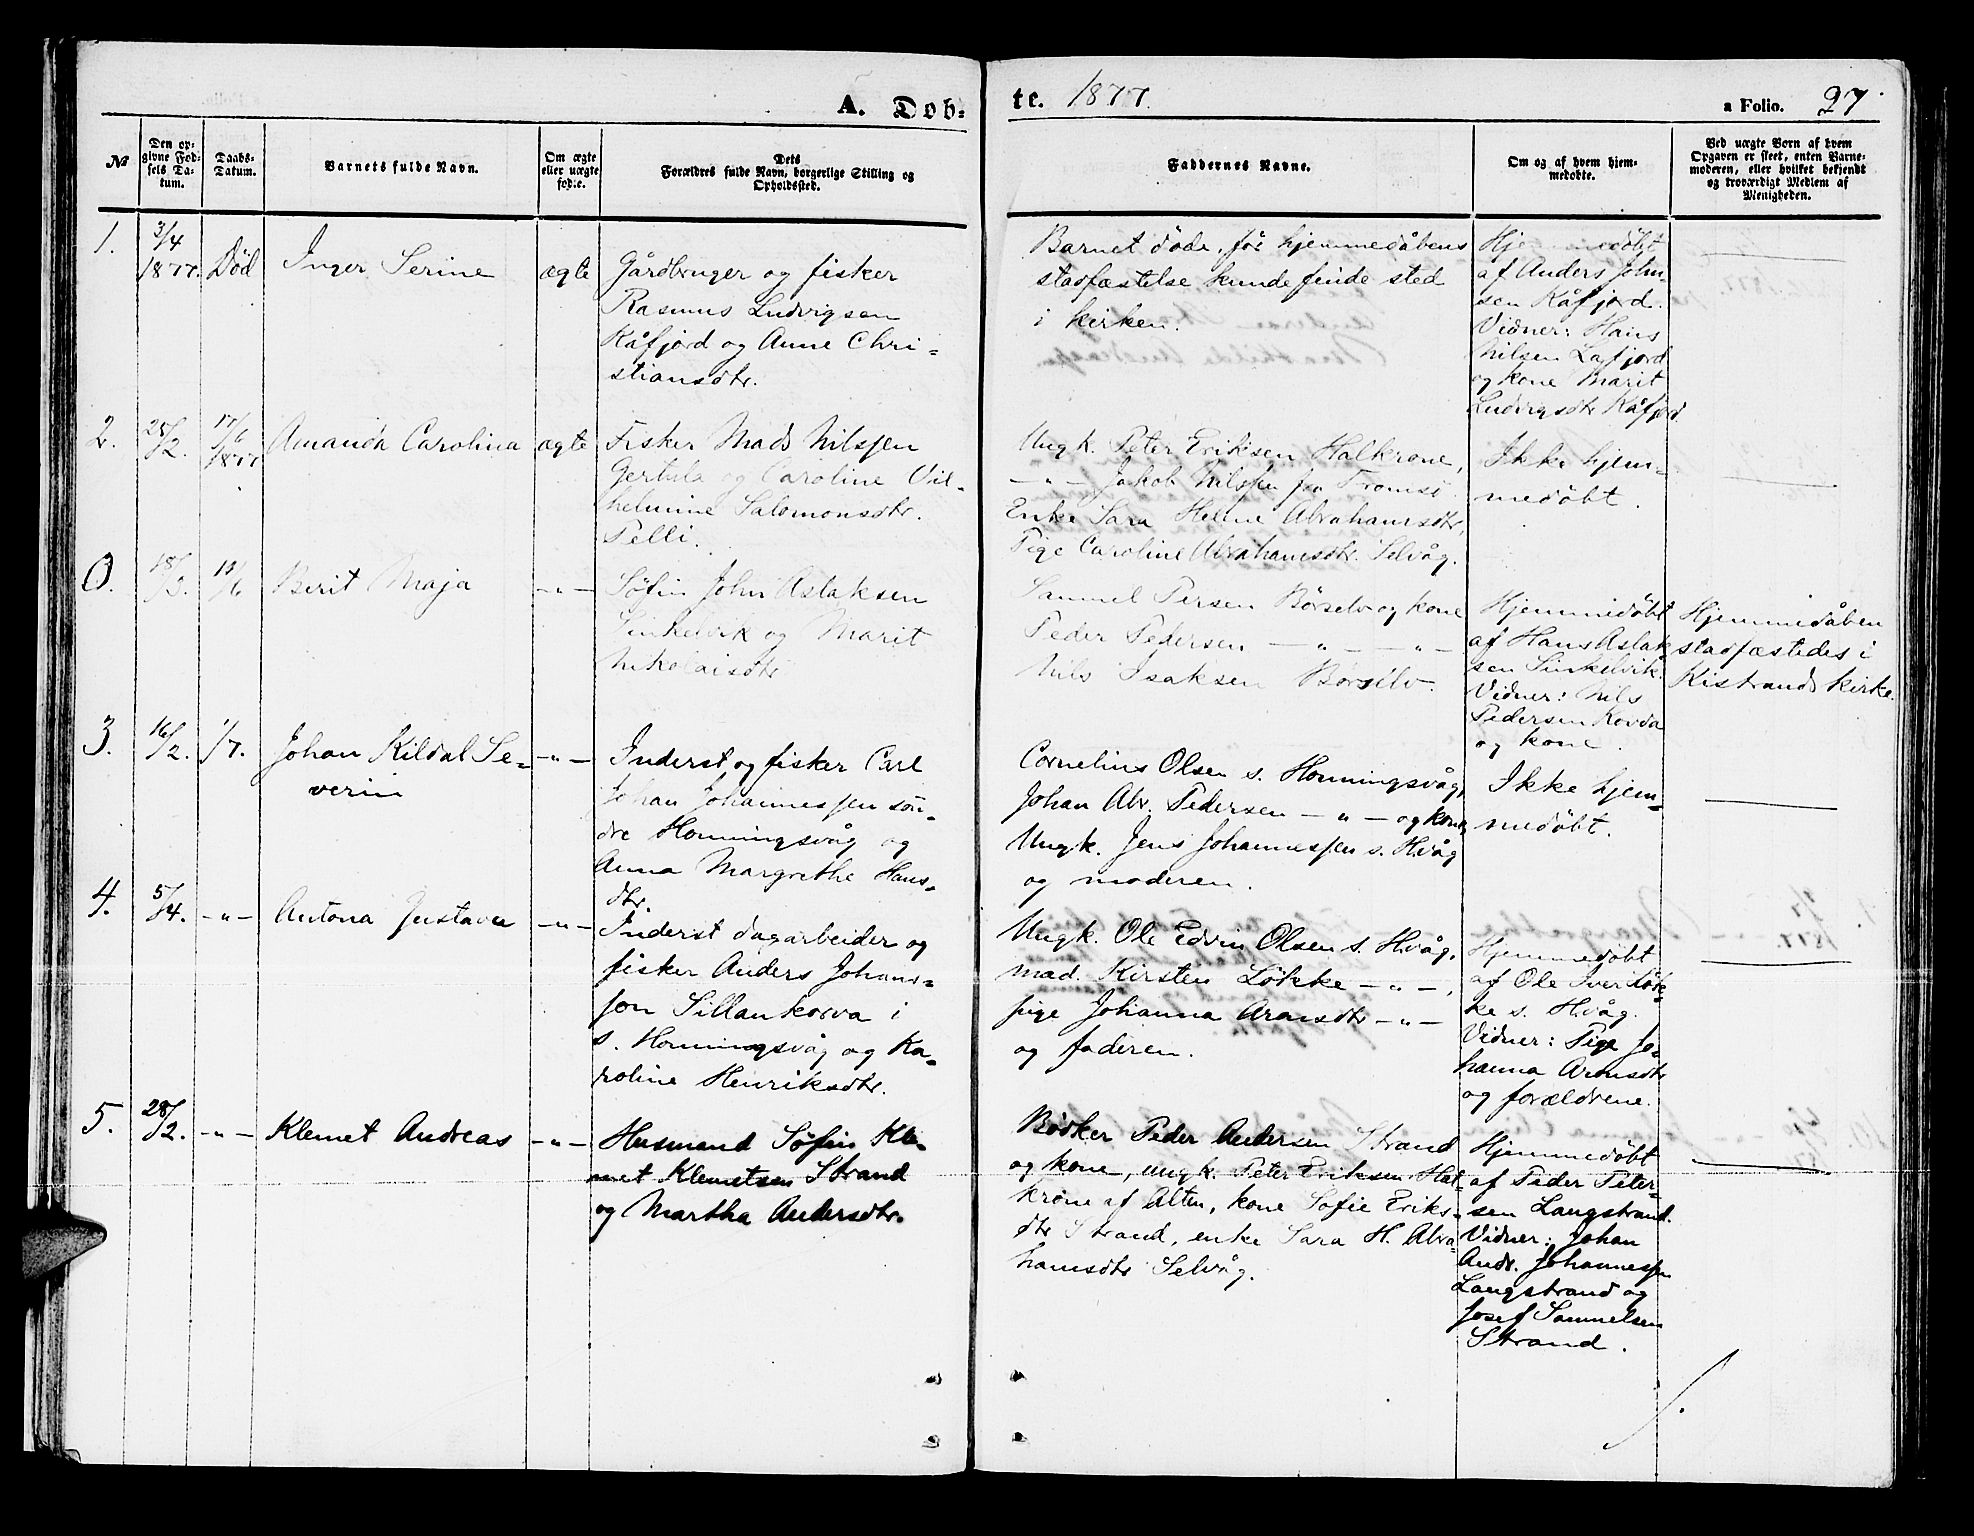 A. Døb-
te. 1877.
a Folio. 27
№
Den op-
givne Fød-
sels Da-
tum.
Daabs-
Datum.
Barnets fulde Navn.
Om ægte
eller uægte
fødte.
Dets
Forældres fulde Navn, borgerlige Stilling og
Opholdssted.
Faddernes Navne.
Om og af hvem hjem-
medøbte.
Ved uægte Børn af hvem
Opgaven er skeet, enten Barne-
moderen, eller hvilket bekjendt
og troværdigt Medlem af
Menigheden.
1.
3/4
1877.
Død
Inger Serine
ægte
Gårdbruger og fisker
Rasmus Ludvigsen
Kåfjord og Anne Chri-
stiansdtr.
Barnet døde, før hjemmedåbens
stadfæstelse kunde finde sted
i kirken.
Hjemmedøbt
af Anders John-
sen Kåfjord.
Vidner: Hans
Nilsen Lafjord
og kone Marit
Ludvigsdtr Kåfjord
2.
25/2.
17/6
1877
Amanda Carolina
ægte
Fisker Mads Nilssen
Gertula og Caroline Vil-
helmine Salomonsdtr.
Pelli.
Ungk. Peter Eriksen Halkrone,
-"- Jakob Nilssen fra Tromsø
Enke Sara Helene Abrahamsdtr,
Pige Caroline Abrahamsdtr. Selvåg.
Ikke hjem-
medøbt.
0.
18/3.
18/6
Berit Maja
-"-
Søfin John Aslaksen
Sinkelvik og Marit
Nikolaisdtr
Samuel Persen Børselv og kone
Peder Pedersen -"- -"-
Nils Isaksen Børselv.
Hjemmedøbt
af Hans Aslak-
sen Sinkelvik.
Vidner: Nils
Pedersen Kovda
og kone.
Hjemmedåben
stadfæstedes i
Kistrands kirke.
3.
16/2.
1/7.
Johan Kildal Se-
verin
-"-
Inderst og fisker Carl
Johan Johannessen søn-
dre Honningsvåg og
Anna Margrethe Hans-
dtr.
Cornelius Olsen s. Honningsvåg,
Johan Abr. Pedersen -"- og kone,
Ungk. Jens Johannessen s. Hvåg
og moderen.
Ikke hjem-
medøbt.
4.
5/4.
-"-
Antona Gustava
-"-
Inderst dagarbeider og
fisker Anders Johans-
sen Sillankorva i
s. Honningsvåg og Ka-
roline Henriksdtr.
Ungk. Ole Edvin Olsen s. Hvåg,
mad. Kirsten Løkke -"-,
pige Johanna Aronsdtr -"-
og faderen.
Hjemmedøbt
af Ole Iver Løk-
ke s. Hvåg.
Vidner: Pige Jo-
hanna Aronsdtr
og forældrene.
5.
28/2.
-"-
Klemet Andreas
-"-
Husmand Søfin Kle-
met Klemetsen Strand
og Martha Andersdtr.
Bødker Peder Andersen Strand
og kone, ungk. Peter Eriksen Hal-
krone af Alten, kone Sofie Eriks-
dtr Strand, enke Sara H. Abra-
hamsdtr Selvåg.
Hjemmedøbt
af Peder Peter-
sen Langstrand.
Vidner: Johan
Andr. Johannessen
Langstrand og
Josef Samuelsen
Strand.